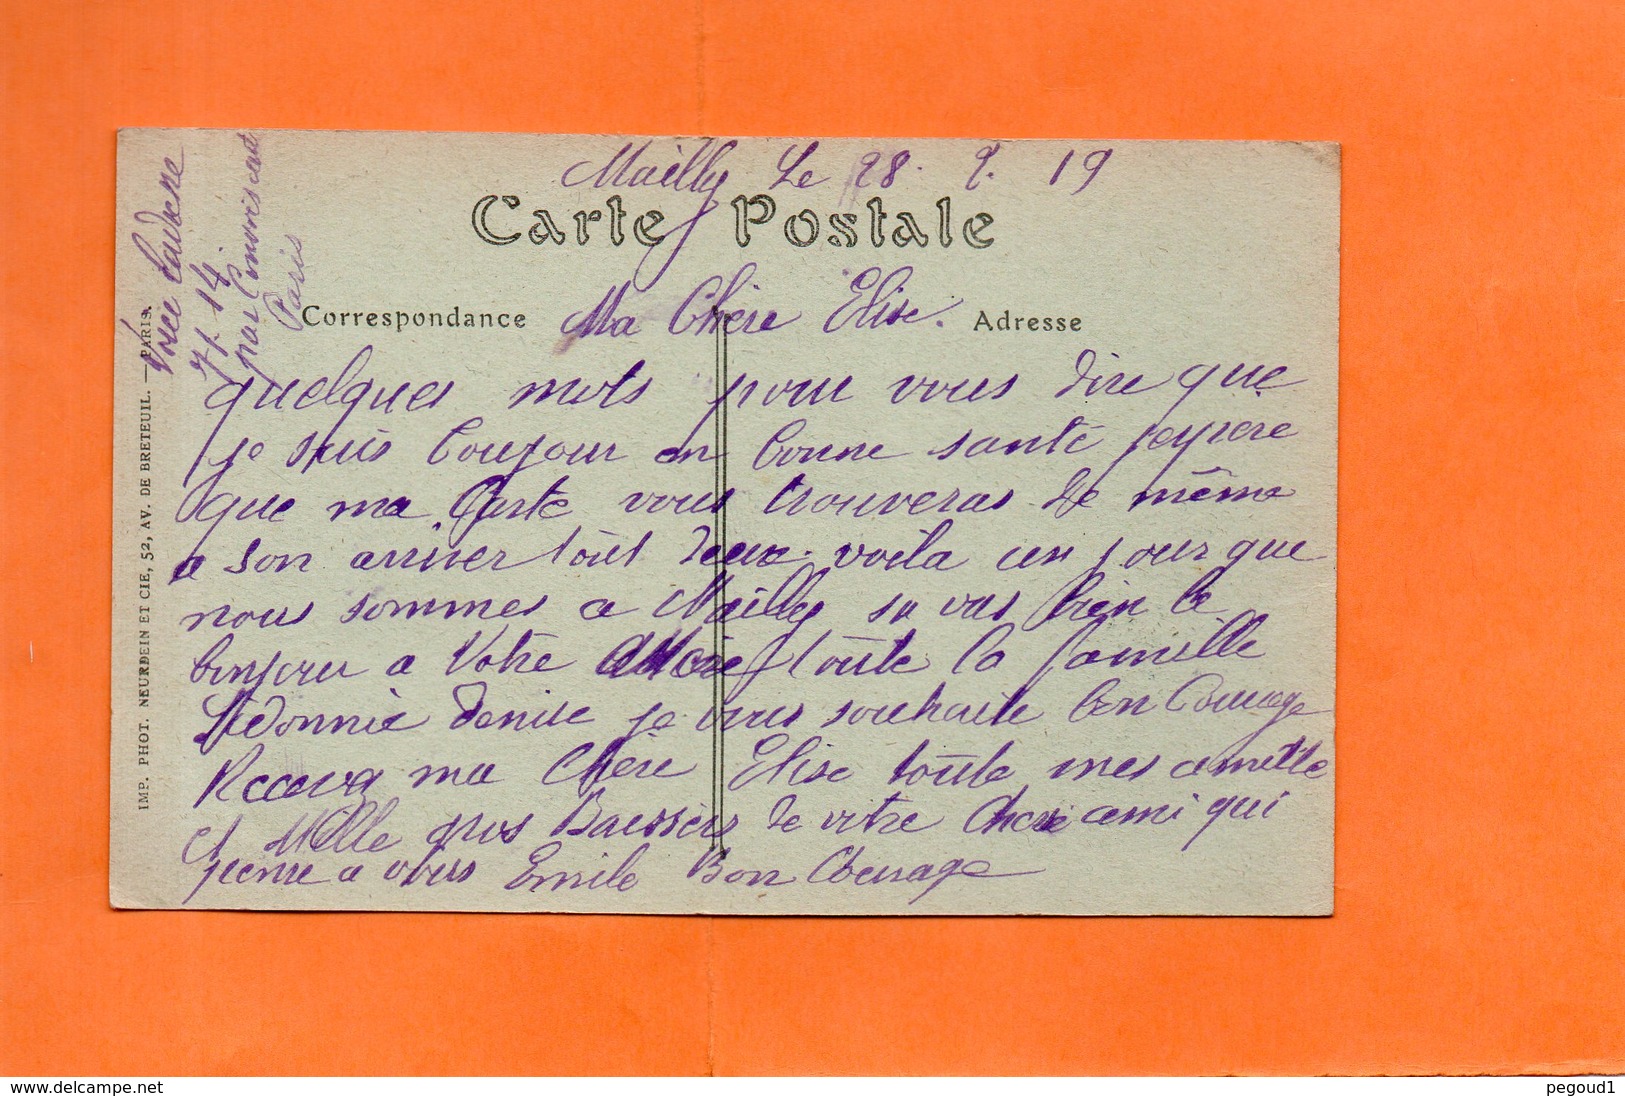 Mailly Le 28. 2. 19
Carte Postale
Correspondance
Ma Chère Elise.
Adresse
quelques mots pour vous dire que
je suis toujour en bonne santé
que ma Carte vous trouveras de même
a son arriver tout deux. voila un jour que
nous sommes a Mailly bien le
bonjour a Votre toute la famille
Denise je vous souhaite bon Courage
ma Chère Elise toute mes amitte
et Mille gros Baissers de votre Chere ami qui
pense a vous Emile Bon Courage
par
Paris
IMP. PHOT. NEURDEIN ET CIE, 52, AV. DE BRETEUIL. — PARIS.
www.delcampe.net
pegoud1